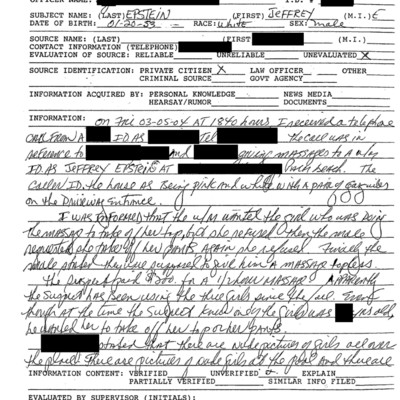 OFFICER NAME: I.D. #
SUBJECT NAME: (LAST) EPSTEIN (FIRST) JEFFREY (M.I.) E
DATE OF BIRTH: 01-20-53 RACE: White SEX: male
SOURCE NAME: (LAST) (FIRST) (M.I.)
CONTACT INFORMATION (TELEPHONE)
EVALUATION OF SOURCE: RELIABLE UNRELIABLE UNEVALUATED X
SOURCE IDENTIFICATION: PRIVATE CITIZEN X LAW OFFICER OTHER
CRIMINAL SOURCE GOVT AGENCY
INFORMATION ACQUIRED BY: PERSONAL KNOWLEDGE NEWS MEDIA
HEARSAY/RUMOR DOCUMENTS
INFORMATION: On Fri 03-05-04 at 1840 hours I received a telephone
call from a ID as Tel The call was in
reference to and giving massages to a w/m
ID as JEFFREY EPSTEIN at Beach. The
caller ID. the house as being pink and white with a pair of
on the Driveway entrance.
I was informed that the w/m wanted the girl who was doing
the massage to take off her top, but she refused then the male
requested she take off her pants again she refused. Finally the
male stated they give him a massage topless
The Suspect paid $ for a 1/2 hour massage Apparently
the Suspect has been using the three girls since the
though at the time the Subject knew was old,
he wanted her to take off her top or her pants.
stated that there are nude pictures of girls all over
the There are pictures of nude girls at the pool and there are
INFORMATION CONTENT: VERIFIED UNVERIFIED EXPLAIN
PARTIALLY VERIFIED SIMILAR INFO FILED
EVALUATED BY SUPERVISOR (INITIALS):